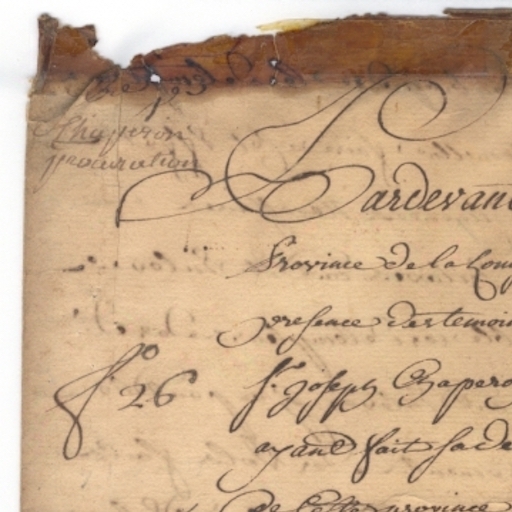 Chaperon
procuration
Pardevant
Province de la Loui
presence des temoin
f.º 26
Sr. Joseph Chapero
ayant fait sa de
de cette province